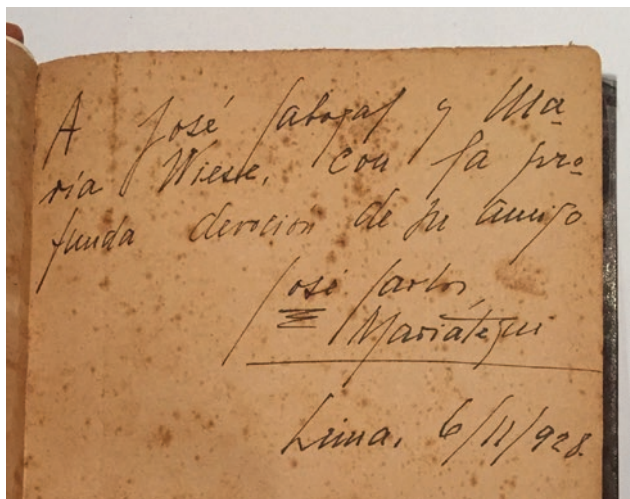 A José Sabogal y Ma
ría Wiesse, con la pro
funda devoción de su amigo
José Carlos
Mariátegui
Lima, 6/11/928.